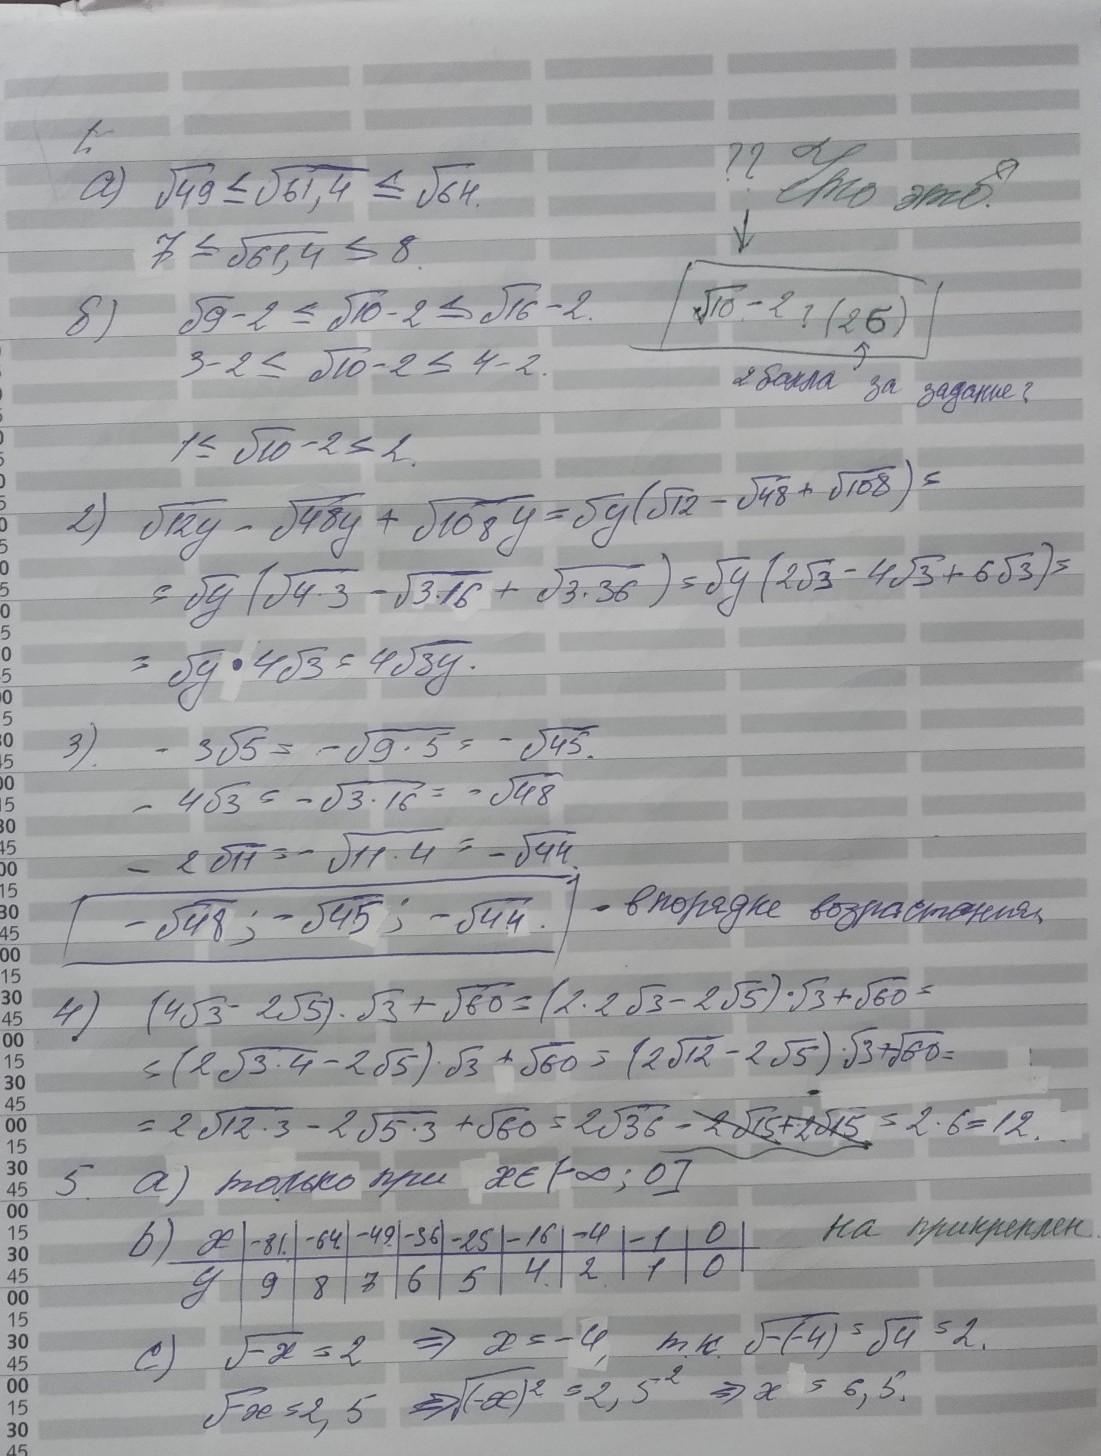 1.
а) √49 ≤ √61,4 ≤ √64.
7 ≤ √61,4 ≤ 8.
?? Что это?
б) √9-2 ≤ √10-2 ≤ √16-2.
√10-2 ? (2б)
3-2 ≤ √10-2 ≤ 4-2.
2 балла за задание?
1 ≤ √10-2 ≤ 2.
2) √12y - √48y + √108y = √y(√12 - √48 + √108) =
= √y(√4·3 - √3·16 + √3·36) = √y(2√3 - 4√3 + 6√3) =
= √y · 4√3 = 4√3y.
3). - 3√5 = -√9·5 = -√45.
- 4√3 = -√3·16 = -√48
- 2√11 = -√11·4 = -√44.
-√48; -√45; -√44. - в порядке возрастания
4) (4√3 - 2√5)·√3 + √60 = (2·2√3 - 2√5)·√3 + √60 =
= (2√3·4 - 2√5)·√3 + √60 = (2√12 - 2√5)·√3 + √60 =
= 2√12·3 - 2√5·3 + √60 = 2√36 - 2√15 + 2√15 = 2·6 = 12.
5. а) только при x∈(-∞; 0]
b) x -81. -64 -49 -36 -25 -16 -4 -1 0
y 9 8 7 6 5 4. 2 1 0
на прикреплен.
c) √-x = 2 ⇒ x = -4, т.к. √-(-4) = √4 = 2.
√-x = 2,5 ⇒ √(-x)² = 2,5² ⇒ x = 6,5.